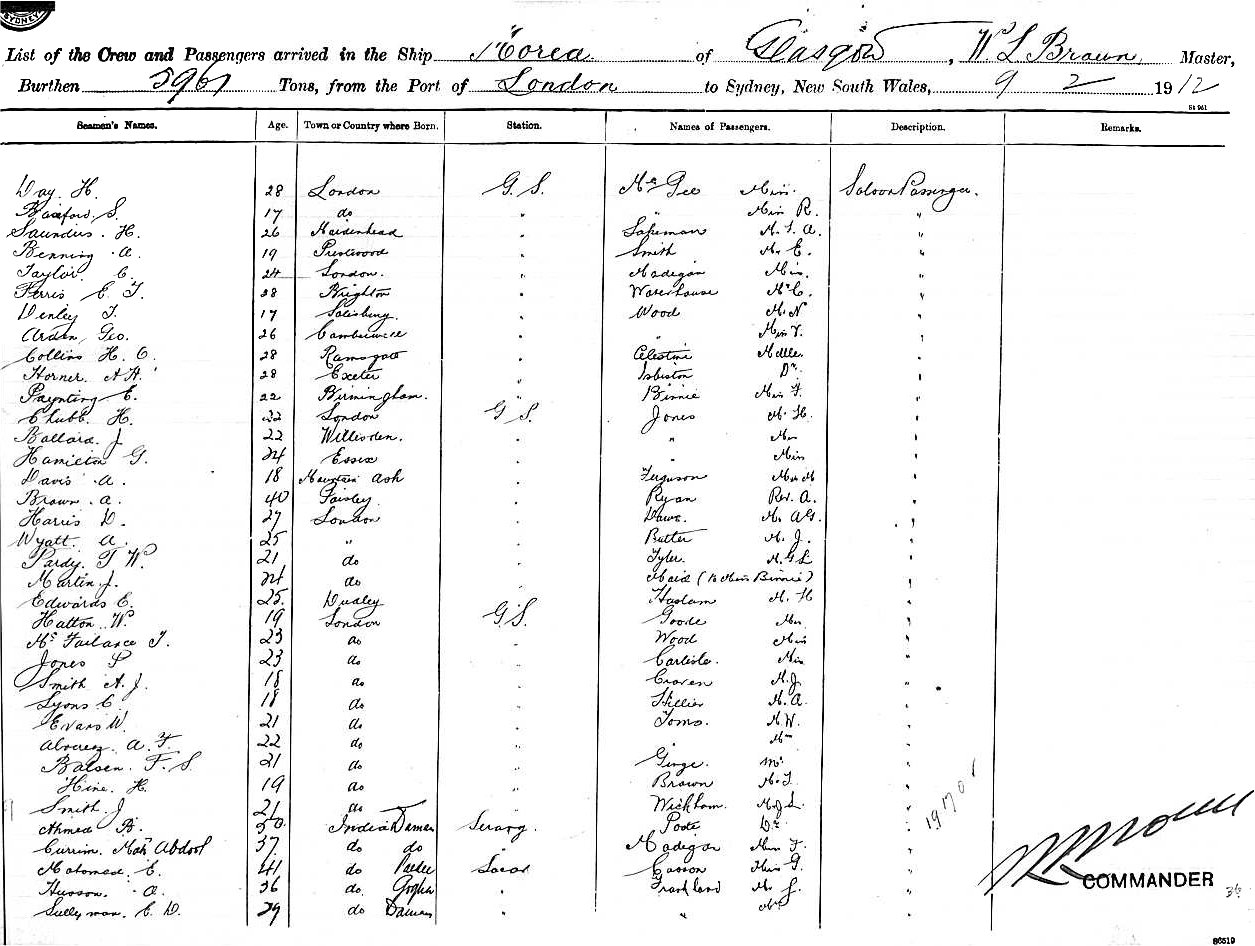 SYDNEY
List of the Crew and Passengers arrived in the Ship Morea of Glasgow, W. L. Brown, Master,
Burthen 5961 Tons, from the Port of London to Sydney, New South Wales, 9 2 1912
St 961
Seamen's Names. Age. Town or Country where Born. Station. Names of Passengers. Description. Remarks.
Day. H. 28 London G. S. Mc Gee Miss. Saloon Passenger.
S. 17 do " " Miss R. "
Saunders. H. 26 Maidenhead " M. "
Benning. A. 19 " Smith M. E. "
Taylor C. 24 London. " Madigan Miss. "
Ferris E. J. 28 Brighton " Waterhouse Mr C. "
Denley J. 17 Salisbury. " Wood M. N "
Arden, Geo. 26 Camberwell " " "
Collins H. C. 28 Ramsgate " Celestine Mdlle. "
Horner. A. A. 28 Exeter " Dr. "
Paynting E. 22 Birmingham. " Binnie Miss F. "
Chubb. H. 22 London G S. Jones M. H. "
Ballard. J. 22 Willesden. " " Mrs "
Hamilton G. 24 Essex " " Miss "
Davis A. 18 Mountain Ash " Ferguson "
Brown. A. 40 Paisley " Ryan Rev. A. "
Harris D. 27 London " Dawe. M. AG. "
Wyatt. A. 25 " " Butter M. J. "
Pardy. F W. 21 do " Tyler. M. G L "
Martin J. 24 do " Maid (to Miss Binnie) "
Edwards E. 25. Dudley " Haslam M. H "
Hatton W. 19 London G. S. Goode Mrs "
J. 23 do " Wood Miss "
Jones P 23 do " Carlisle. Miss "
Smith A. J. 18 do " Craven M. J. "
Lyons C. 18 do " Hillier M. A. "
Evans W. 21 do " Toms. M. W. "
Alvarez. A. F. 22 do " " Mrs "
Batsen. F. S. 21 do " Ginge. Mr "
Hine. H. 19 do " Brown M. J. "
Smith J 21 do " Wickham. M. J L. "
Ahmed B. 50. India Daman Serang. Poate Dr. "
Currim. Moh Abdool 37. do do " Madigan Miss F. "
Mahomed E. 41 do Casson Miss G. "
Husson. A. 36 do. Gogha " Frankland M. J. "
Sulleyman. E. D. 29 do Daman " " Mrs "
COMMANDER
86519